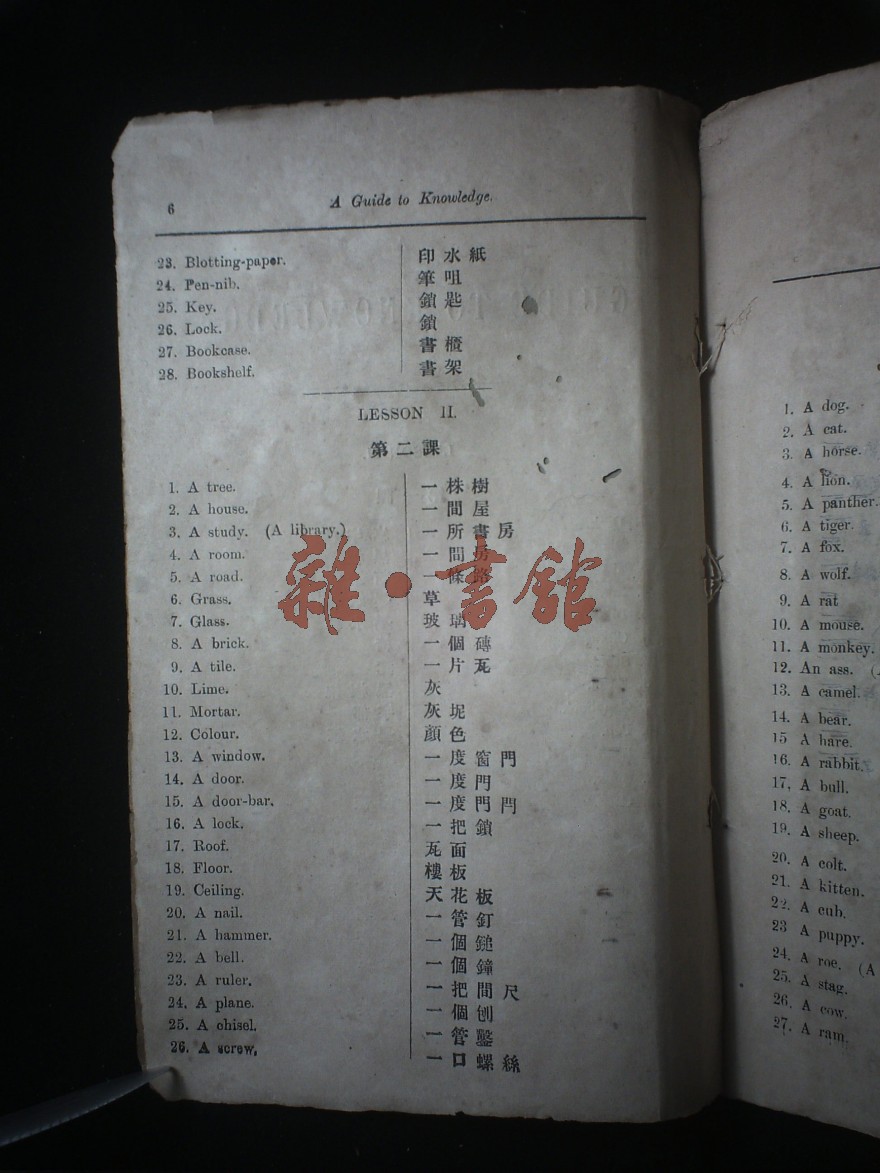 6 A Guide to Knowledge.
23. Blotting-paper. 印水紙
24. Pen-nib. 筆咀
25. Key. 鎖匙
26. Lock. 鎖
27. Bookcase. 書櫃
28. Bookshelf. 書架
LESSON II.
第二課
1. A tree. 一株樹
2. A house. 一間屋
3. A study. (A library.) 一所書房
4. A room. 一間房
5. A road. 一條路
6. Grass. 草
7. Glass. 玻璃
8. A brick. 一個磚
9. A tile. 一片瓦
10. Lime. 灰
11. Mortar. 灰坭
12. Colour. 顏色
13. A window. 一度窗門
14. A door. 一度門
15. A door-bar. 一度門閂
16. A lock. 一把鎖
17. Roof. 瓦面
18. Floor. 樓板
19. Ceiling. 天花板
20. A nail. 一管釘
21. A hammer. 一個鎚
22. A bell. 一個鐘
23. A ruler. 一把間尺
24. A plane. 一個刨
25. A chisel. 一管鑿
26. A screw. 一口螺絲
雜·書館
1. A dog.
2. A cat.
3. A horse.
4. A lion.
5. A panther.
6. A tiger.
7. A fox.
8. A wolf.
9. A rat
10. A mouse.
11. A monkey.
12. An ass. (
13. A camel.
14. A bear.
15 A hare.
16. A rabbit.
17. A bull.
18. A goat.
19. A sheep.
20. A colt.
21. A kitten.
22. A cub.
23 A puppy.
24. A roe. (A
25. A stag.
26. A cow.
27. A ram.